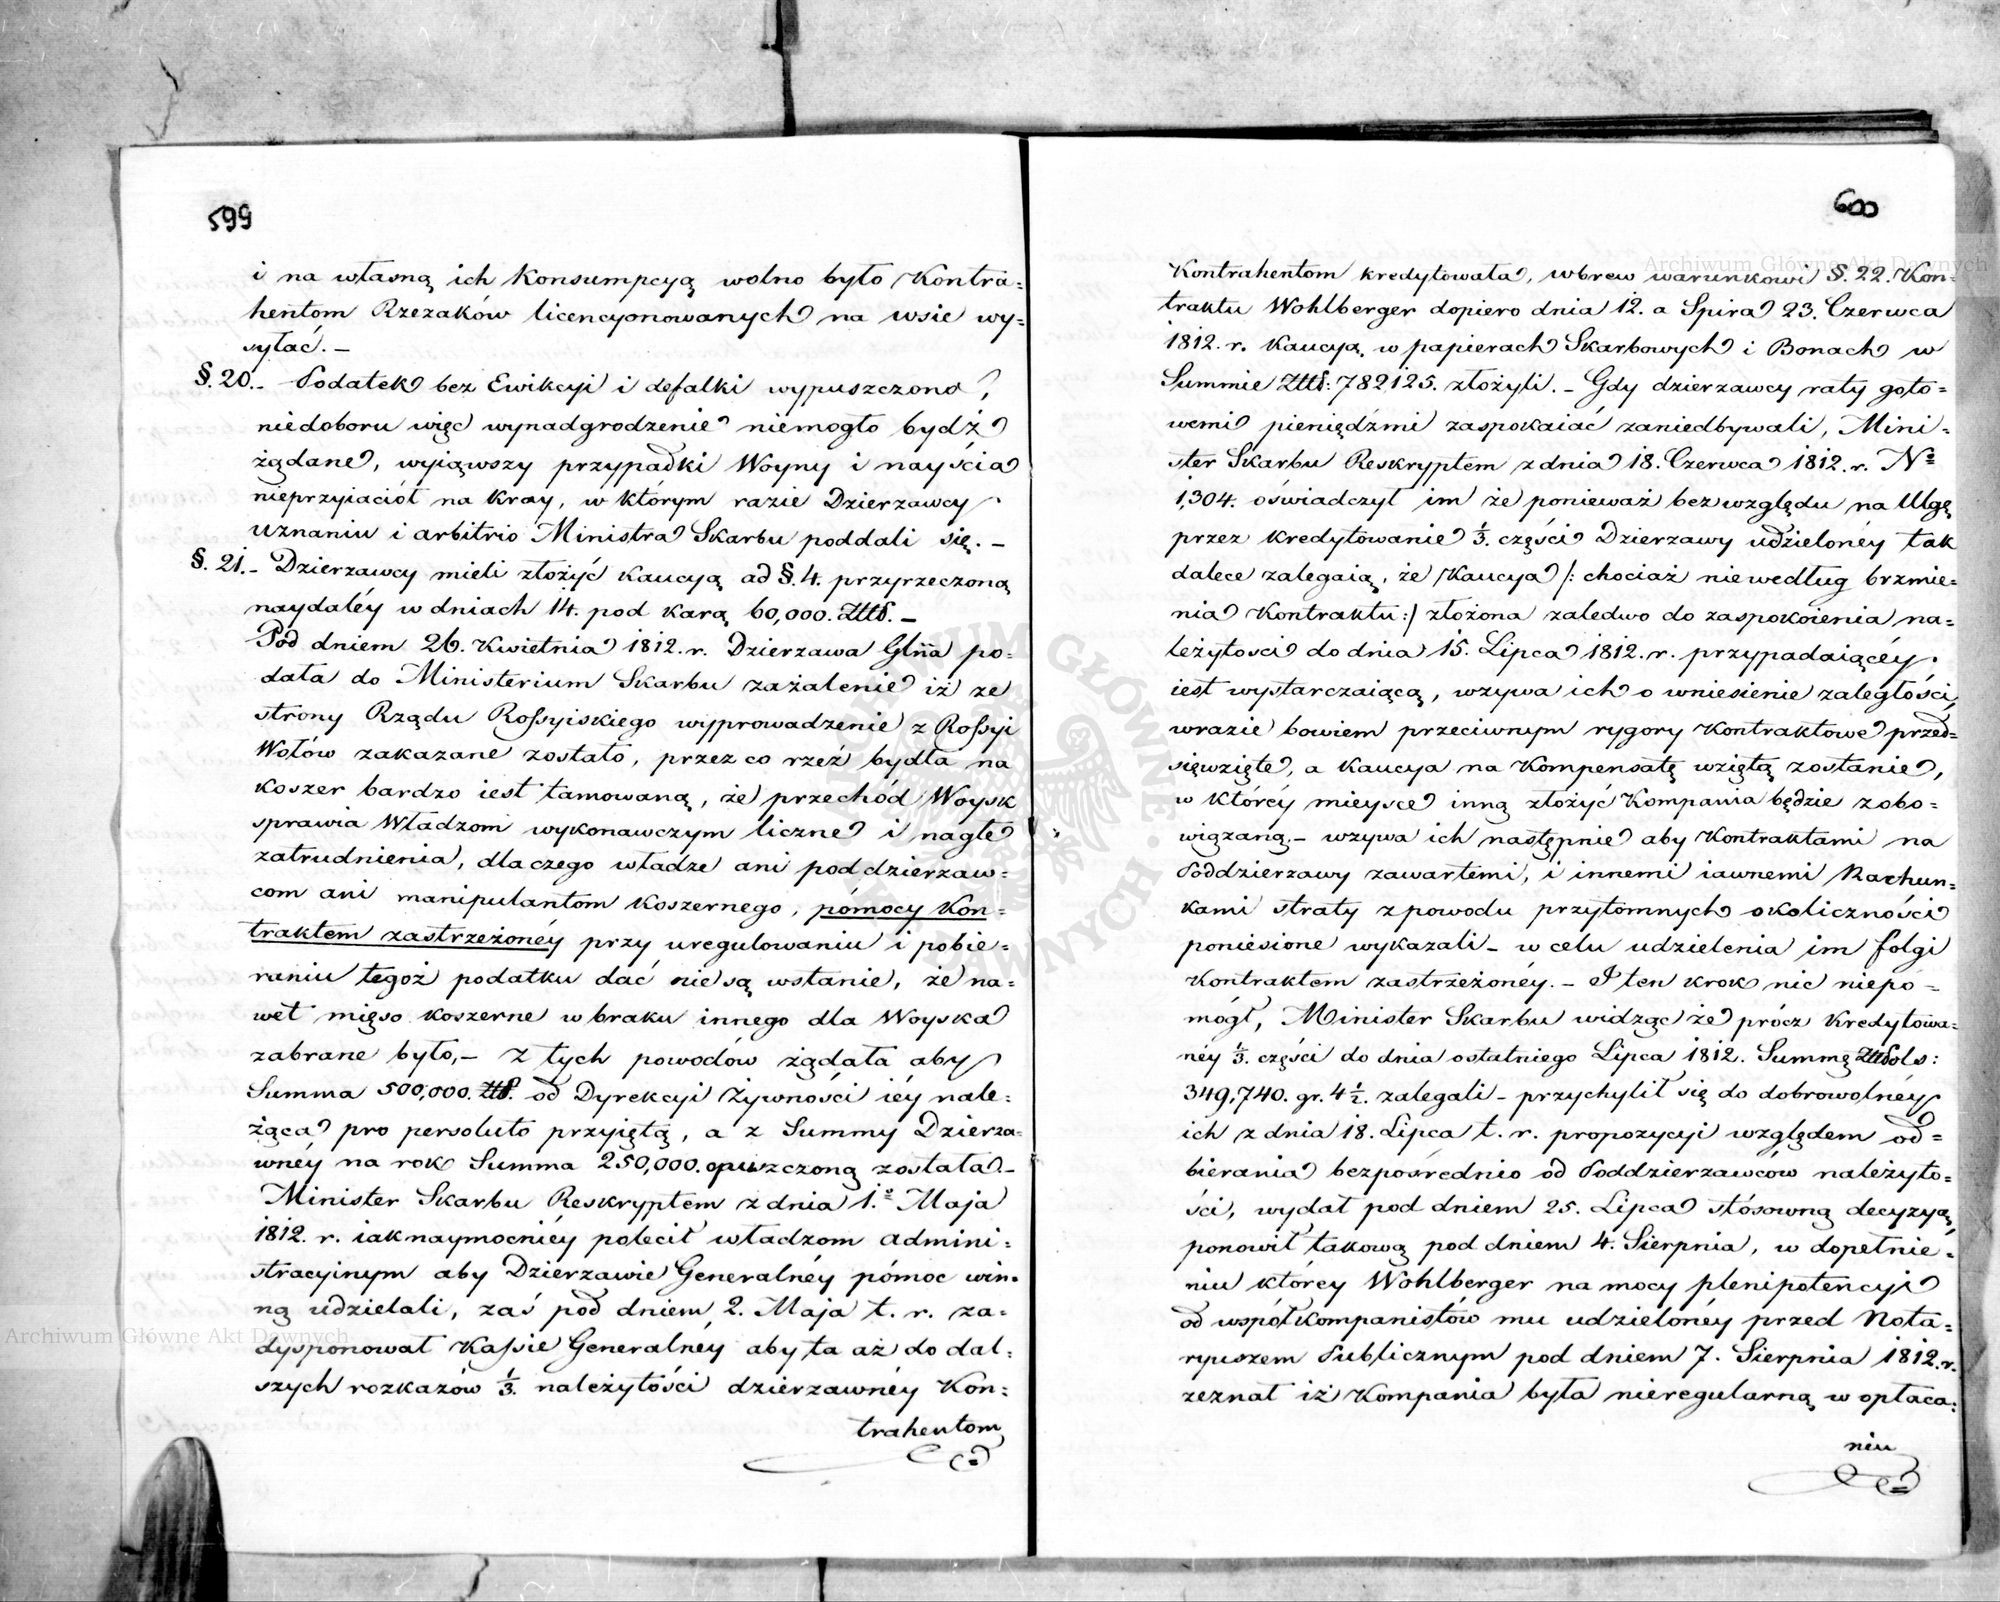 599
i na własną ich Konsumpcyą wolno było Kontra=
hentom Rzezaków licencyonowanych na wsie wy=
syłać. –
§. 20. – Podatek bez Ewikcyi i defalki wypuszczono,
niedoboru więc wynadgrodzenie niemogło bydź
żądane, wyiąwszy przypadki Woyny i nayścia
nieprzyiaciół na kray, w którym razie Dzierzawcy
uznaniu i arbitrio Ministra Skarbu poddali się. –
§. 21. – Dzierzawcy mieli złożyć kaucyą ad §. 4. przyrzeczoną
naydaléy w dniach 14. pod karą 60,000. Złtt. –
Pod dniem 26. Kwietnia 1812. r. Dzierzawa Glna po=
dała do Ministerium Skarbu zażalenie iż ze
strony Rządu Rossyiskiego wyprowadzenie z Rossyi
Wołów zakazane zostało, przez co rzeź bydła na
koszer bardzo iest tamowaną, że przechód Woysk
sprawia Władzom wykonawczym liczne i nagłe
zatrudnienia, dlaczego władze ani poddzierzaw=
com ani manipulantom koszernego, pómocy Kon=
traktem zastrzeżonéy przy uregulowaniu i pobie=
raniu tegoż podatku dać nie są wstanie, że na=
wet mięso koszerne w braku innego dla Woyska
zabrane było, – z tych powodów żądała aby
Summa 500,000. Złt. od Dyrekcyi Żywności iéy nale=
żąca pro persoluto przyiętą, a z Summy Dzierza=
wnéy na rok Summa 250,000. opuszczoną została. –
Minister Skarbu Reskryptem z dnia 1.º Maja
1812. r. iaknaymocniéy polecił władzom admini=
stracyinym aby Dzierzawie Generalnéy pómoc win=
ną udzielali, zaś pod dniem 2. Maja t. r. za=
dysponował Kassie Generalnéy aby ta aż do dal=
szych rozkazów ⅓. należytości dzierzawnéy Kon=
trahentom
600
Kontrahentom kredytowała, wbrew warunkowi §. 22. Kon=
traktu Wohlberger dopiero dnia 12. a Spira 23. Czerwca
1812. r. Kaucyą w papierach Skarbowych i Bonach w
Summie Złtt: 782125. złożyli. – Gdy dzierzawcy raty goto=
wemi pieniędźmi zaspokaiać zaniedbywali, Mini=
ster Skarbu Reskryptem z dnia 18. Czerwca 1812. r. Nº
1,304. oświadczył im że ponieważ bez względu na Ulgę
przez kredytowanie ⅓. części Dzierzawy udzielonéy tak
dalece zalegaią, że Kaucya /: chociaż niewedług brzmie=
nia Kontraktu :/ złożona zaledwo do zaspokoienia na=
leżytości do dnia 15. Lipca 1812. r. przypadaiącéy
iest wystarczaiącą, wzywa ich o wniesienie zaległości,
wrazie bowiem przeciwnym rygory Kontraktowe przed=
sięwzięte, a Kaucya na Kompensatę wziętą zostanie,
w któréy mieysce inną złożyć Kompania będzie zobo=
wiązaną. – wzywa ich następnie aby Kontraktami na
Poddzierzawy zawartemi, i innemi iawnemi Rachun=
kami straty z powodu przytomnych okoliczności
poniesione wykazali – w celu udzielenia im folgi
Kontraktem zastrzeżonéy. – I ten krok nic niepo=
mógł, Minister Skarbu widząc że prócz Kredytowa=
néy ⅓. części do dnia ostatniego Lipca 1812. Summę Złttpols:
349,740. gr. 4½. zalegali – przychylił się do dobrowolnéy
ich z dnia 18. Lipca t. r. propozycyi względem od=
bierania bezpośrednio od Poddzierzawców należyto=
ści, wydał pod dniem 25. Lipca stósowną decyzyą,
ponowił takową pod dniem 4. Sierpnia, w dopełnie=
niu którey Wohlberger na mocy plenipotencyi
od współkompanistów mu udzielonéy przed Nota=
ryuszem Publicznym pod dniem 7. Sierpnia 1812. r.
zeznał iż Kompania była nieregularną w opłaca=
niu
Archiwum Główne Akt Dawnych
Archiwum Główne Akt Dawnych
ARCHIWUM GŁÓWNE AKT DAWNYCH